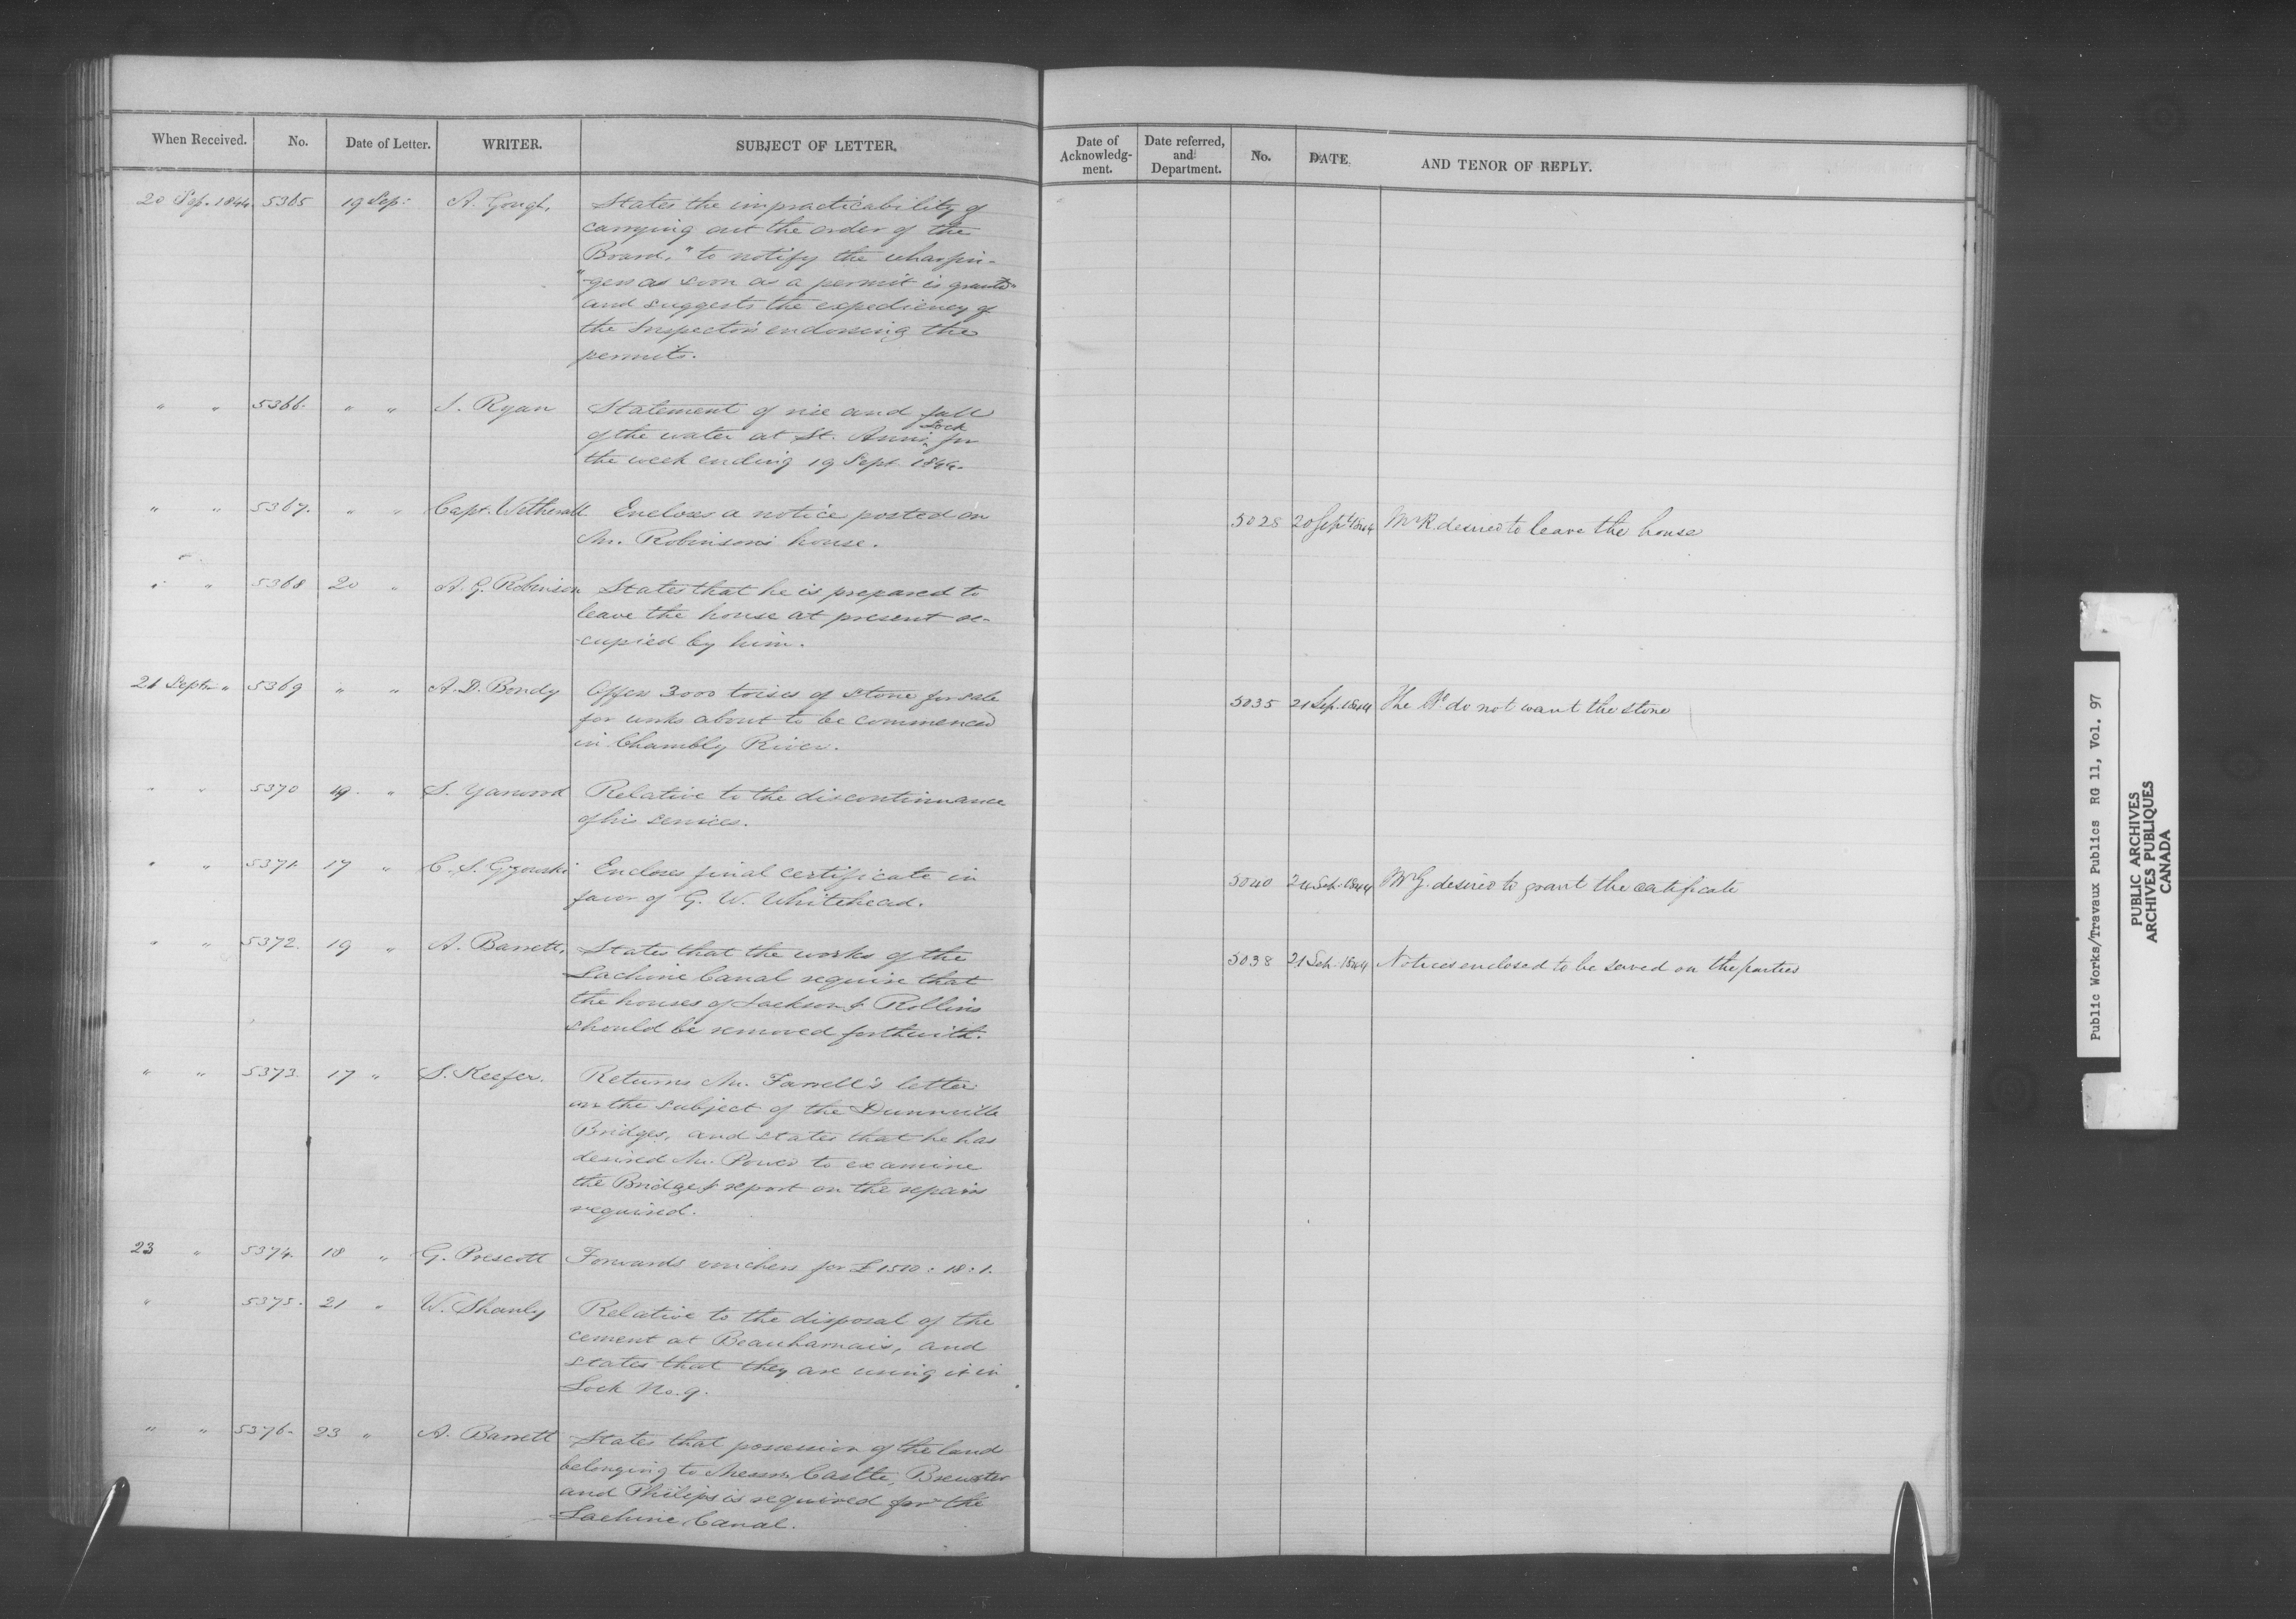 When Received. No. Date of Letter. WRITER. SUBJECT OF LETTER.
20 Sep. 1844 5365 19 Sep: A. Gough, States the impracticability of
carrying out the order of the
Board, "to notify the wharfin-
"gers as soon as a permit is granted"
and suggests the expediency of
the Inspector's endorsing the
permits.
" " 5366. " " J. Ryan Statement of rise and fall
of the water at St. Ann's Lock for
the week ending 19 Sept. 1844.
" " 5367. " " Capt. Wetherall Encloses a notice posted on
Mr. Robinson's house.
" " 5368 20 " A. G. Robinson States that he is prepared to
leave the house at present oc-
-cupied by him.
21 Septr " 5369 " " A. D. Bondy Offers 3000 toises of stone for sale
for works about to be commenced
in Chambly River.
" " 5370 19 " S. Yarwood Relative to the discontinuance
of his services.
" " 5371. 17 " C. S. Gzowski Encloses final certificate in
favor of G. W. Whitehead.
" " 5372. 19 " A. Barrett, States that the works of the
Lachine Canal require that
the houses of Jackson & Rollins
should be removed forthwith.
" " 5373. 17 " S. Keefer. Returns Mr. Farrell's letter
on the subject of the Dunnville
Bridges, and states that he has
desired Mr. Power to examine
the Bridge & report on the repairs
required.
23 " 5374. 18 " G. Prescott Forwards vouchers for £1510:18:1.
" 5375. 21 " W. Shanly Relative to the disposal of the
cement at Beauharnais, and
states that they are using it in
Lock No. 9.
" " 5376. 23 " A. Barrett States that possession of the land
belonging to Messrs. Castle, Brewster
and Philips is required for the
Lachine Canal.
Date of Acknowledg-ment. Date referred, and Department. No. DATE. AND TENOR OF REPLY.
5028 20 Sept 1844 Mr R. desired to leave the house
5035 21 Sep. 1844 The Bd do not want the stone
5040 24 Sep. 1844 Mr G. desired to grant the certificate
5038 21 Sep. 1844 Notices enclosed to be served on the parties
Public Works/Travaux Publics RG 11, Vol. 97
PUBLIC ARCHIVES
ARCHIVES PUBLIQUES
CANADA